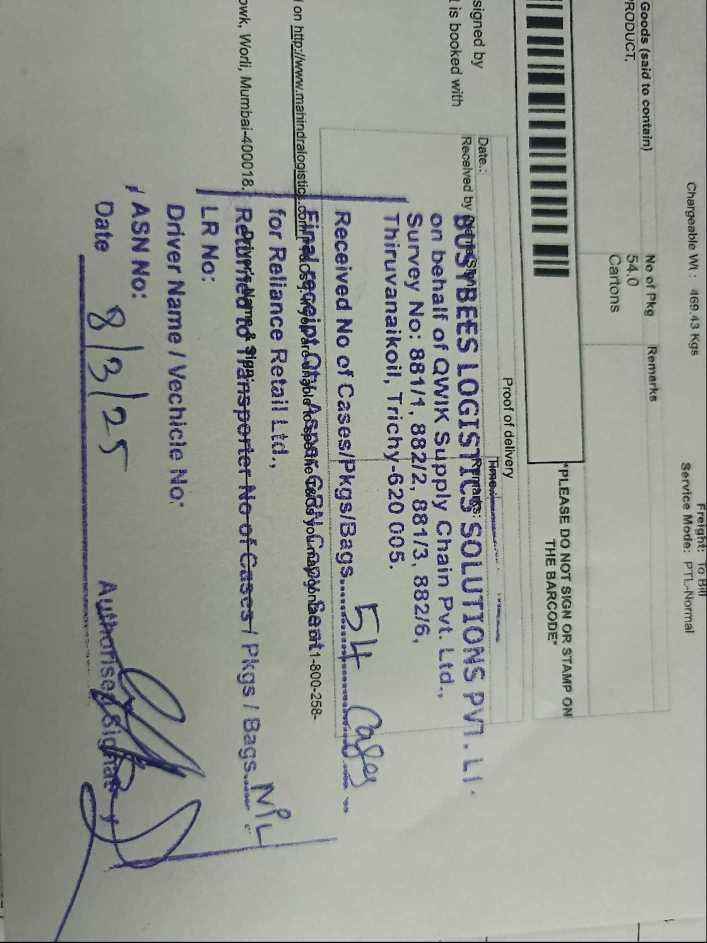 Freight: To Bill
Service Mode: PTL-Normal
Chargeable Wt : 469.43 Kgs
Goods (said to contain)
No of Pkg
Remarks
PRODUCT,
54.0
Cartons
*PLEASE DO NOT SIGN OR STAMP ON
THE BARCODE*
Proof of delivery
signed by
t is booked with
Date.:
Time.:
Received by
Remarks:
BUSYBEES LOGISTICS SOLUTIONS PVT. LT
on behalf of QWIK Supply Chain Pvt. Ltd.,
Survey No: 881/1, 882/2, 881/3, 882/6,
Thiruvanaikoil, Trichy-620 005.
Received No of Cases/Pkgs/Bags 54 Cases
Final receipt Qty As per GRN Copy Sent
for Reliance Retail Ltd.,
Returned to Transporter No of Cases / Pkgs / Bags NIL
LR No:
Driver Name / Vechicle No:
ASN No:
Date 8/3/25
Authorised Signat
on http://www.mahindralogistics.com
1-800-258-
owk, Worli, Mumbai-400018.
Driver's Name & Sign